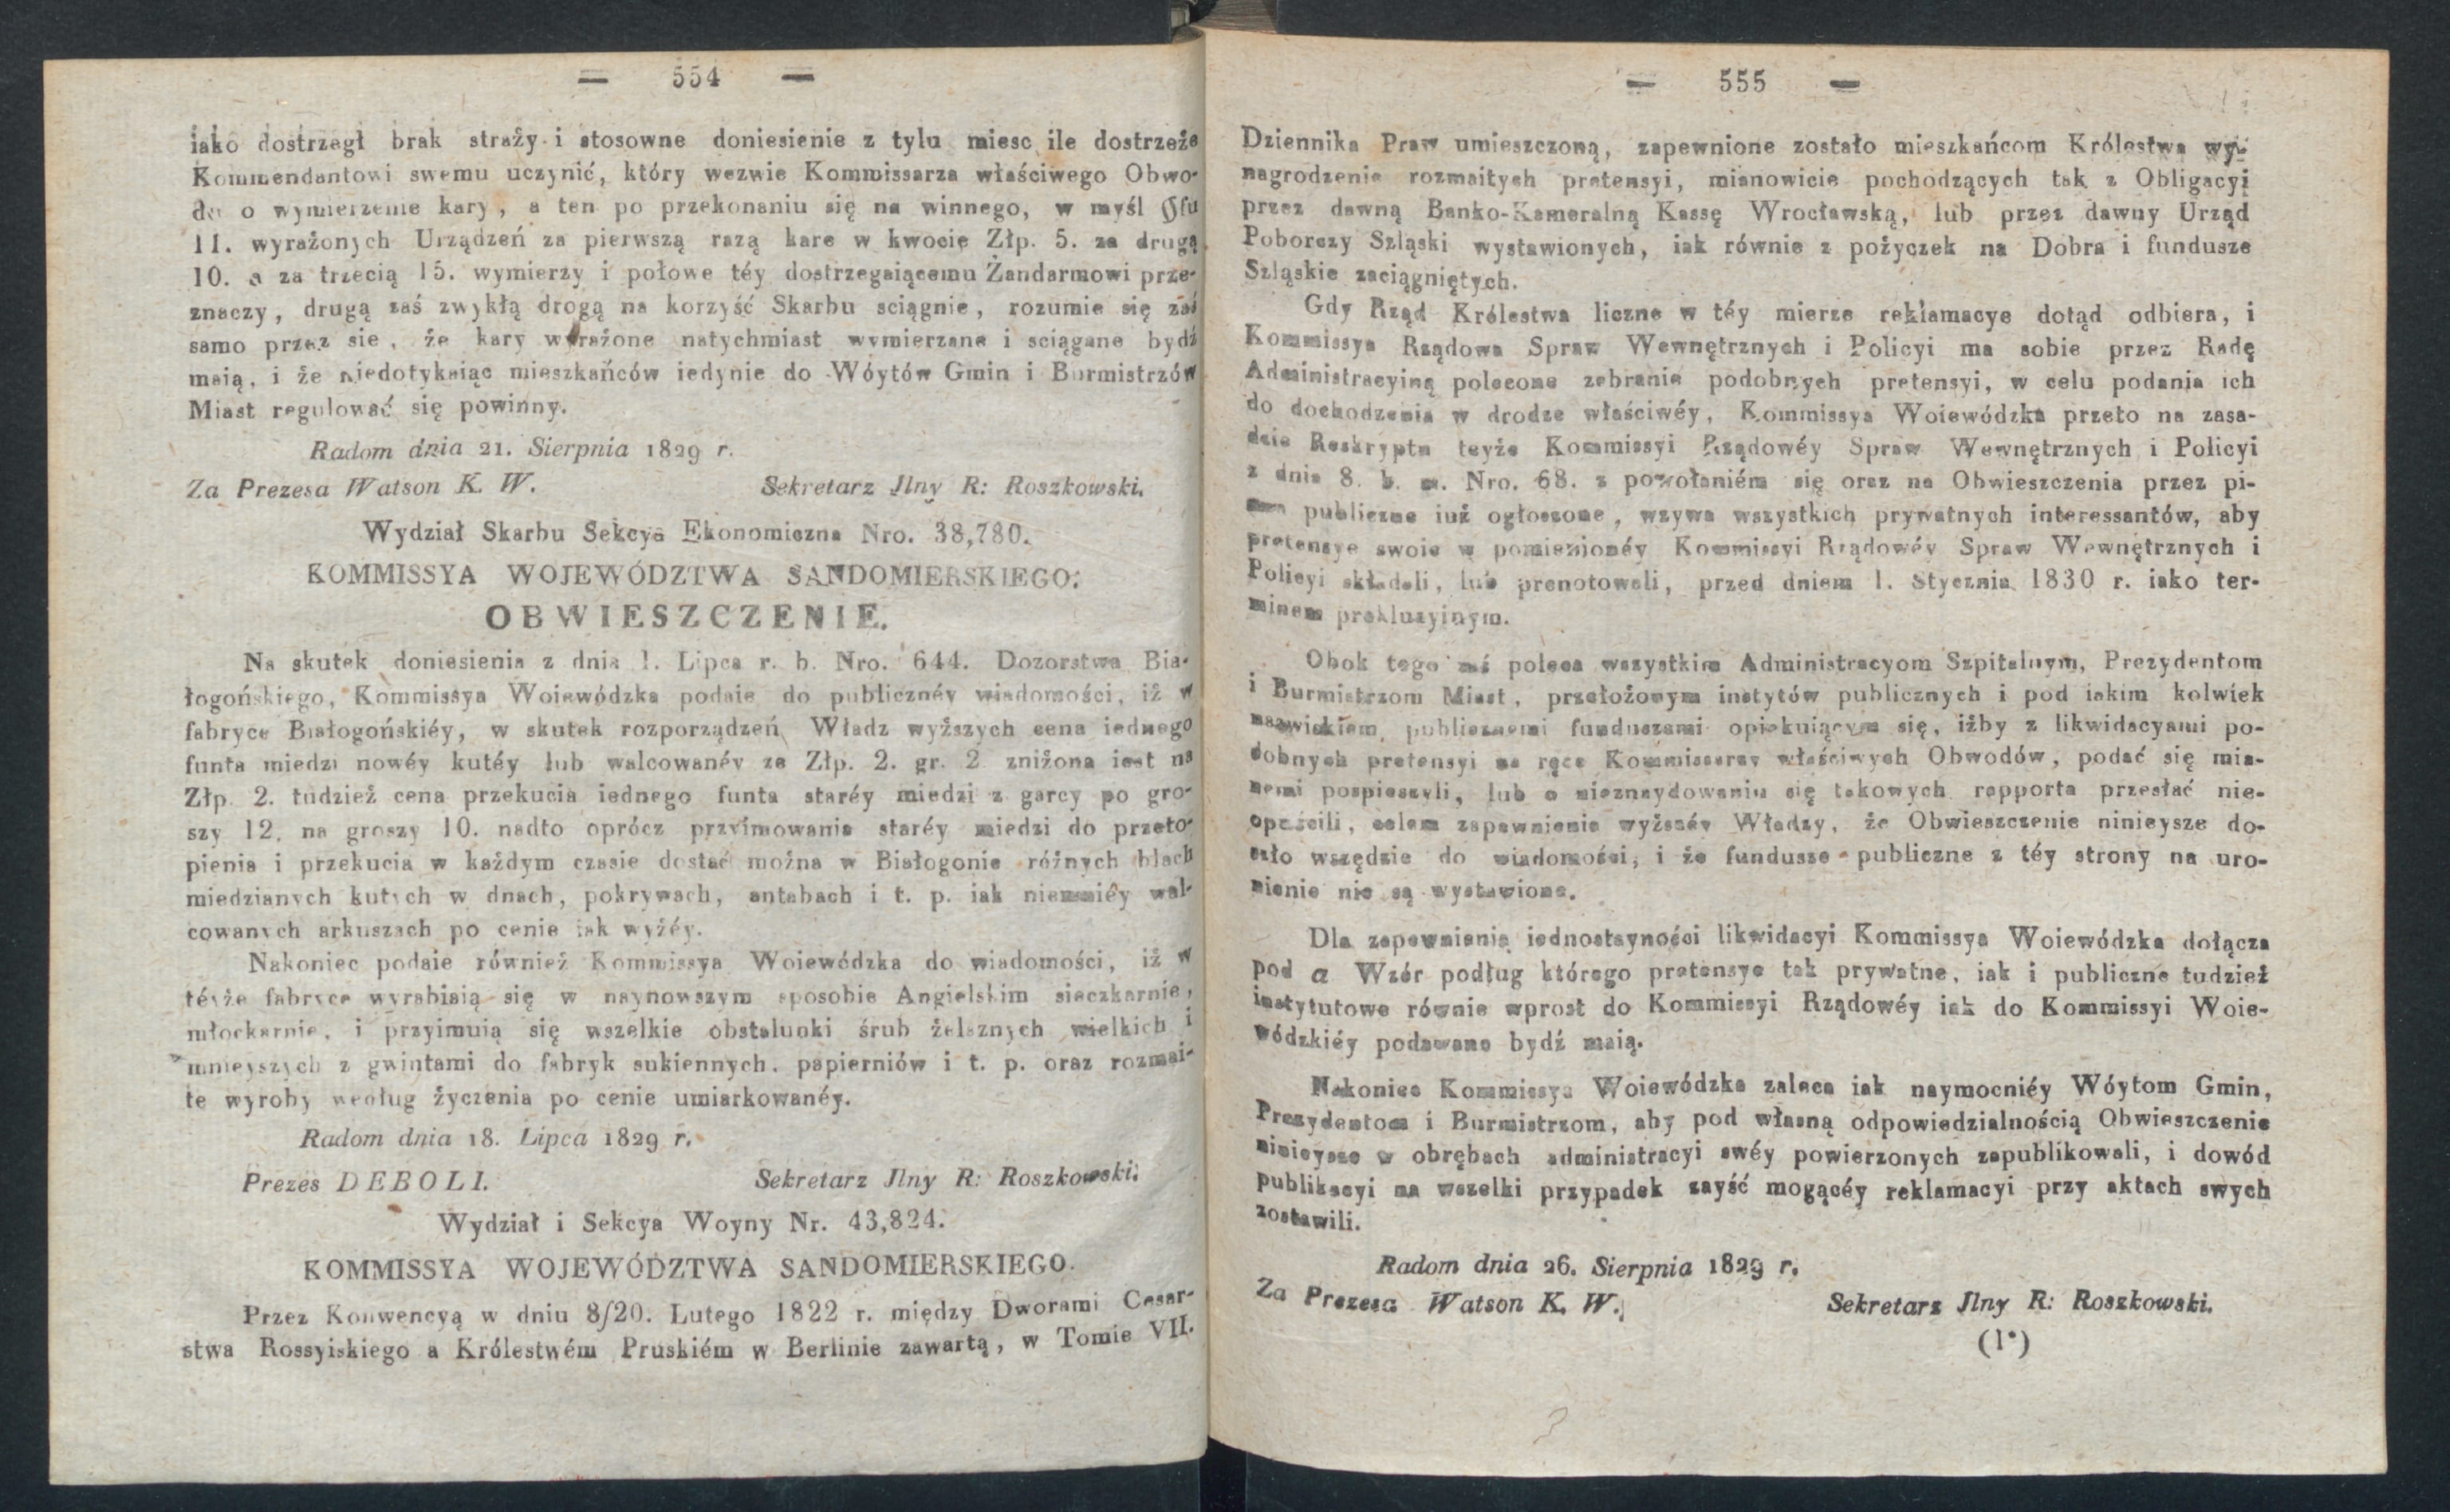 — 554 —
iako dostrzegł brak straży i stosowne doniesienie z tylu miesc ile dostrzeże
Kommendantowi swemu uczynić, który wezwie Kommissarza właściwego Obwo-
du o wymierzenie kary, a ten po przekonaniu się na winnego, w myśl §fu
11. wyrażonych Urządzeń za pierwszą razą kare w kwocie Złp. 5. za drugą
10. a za trzecią 15. wymierzy i połowe téy dostrzegaiącemu Żandarmowi prze-
znaczy, drugą zaś zwykłą drogą na korzyść Skarbu sciągnie, rozumie się zaś
samo przez sie, że kary wyrażone natychmiast wymierzane i sciągane bydź
maią, i że niedotykaiąc mieszkańców iedynie do Wóytów Gmin i Burmistrzów
Miast regulować się powinny.
Radom dnia 21. Sierpnia 1829 r.
Za Prezesa Watson K. W. Sekretarz Jlny R: Roszkowski.
Wydział Skarbu Sekcya Ekonomiczna Nro. 38,780.
KOMMISSYA WOJEWÓDZTWA SANDOMIERSKIEGO.
OBWIESZCZENIE.
Na skutek doniesienia z dnia 1. Lipca r. b. Nro. 644. Dozorstwa Bia-
łogońskiego, Kommissya Woiewódzka podaie do publicznéy wiadomości, iż w
fabryce Białogońskiéy, w skutek rozporządzeń Władz wyższych cena iednego
funta miedzi nowéy kutéy lub walcowanéy ze Złp. 2. gr. 2 zniżona iest na
Złp. 2. tudzież cena przekucia iednego funta staréy miedzi z garcy po gro-
szy 12. na groszy 10. nadto oprócz przyimowania staréy miedzi do przeto-
pienia i przekucia w każdym czasie dostać można w Białogonie różnych blach
miedzianych kutych w dnach, pokrywach, antabach i t. p. iak niemniéy wal-
cowanych arkuszach po cenie iak wyżéy.
Nakoniec podaie również Kommissya Woiewódzka do wiadomości, iż w
téyże fabryce wyrabiaią się w naynowszym sposobie Angielskim sieczkarnie,
młockarnie, i przyimuią się wszelkie obstalunki śrub żelaznych wielkich i
mnieyszych z gwintami do fabryk sukiennych, papierniów i t. p. oraz rozmai-
te wyroby według życzenia po cenie umiarkowanéy.
Radom dnia 18. Lipca 1829 r.
Prezes DEBOLI. Sekretarz Jlny R: Roszkowski.
Wydział i Sekcya Woyny Nr. 43,824.
KOMMISSYA WOJEWÓDZTWA SANDOMIERSKIEGO.
Przez Konwencyą w dniu 8/20. Lutego 1822 r. między Dworami Cesar-
stwa Rossyiskiego a Królestwém Pruskiém w Berlinie zawartą, w Tomie VII.
— 555 —
Dziennika Praw umieszczoną, zapewnione zostało mieszkańcom Królestwa wy-
nagrodzenie rozmaitych pretensyi, mianowicie pochodzących tak z Obligacyi
przez dawną Banko-Kameralną Kassę Wrocławską, lub przez dawny Urząd
Poborczy Szląski wystawionych, iak równie z pożyczek na Dobra i fundusze
Szląskie zaciągniętych.
Gdy Rząd Królestwa liczne w téy mierze reklamacye dotąd odbiera, i
Kommissya Rządowa Spraw Wewnętrznych i Policyi ma sobie przez Radę
Administracyiną polecone zebranie podobnych pretensyi, w celu podania ich
do dochodzenia w drodze właściwéy, Kommissya Woiewódzka przeto na zasa-
dzie Reskryptu teyże Kommissyi Rządowéy Spraw Wewnętrznych i Policyi
z dnia 8. b. m. Nro. 68. z powołaniém się oraz na Obwieszczenia przez pi-
sma publiczne iuż ogłoszone, wzywa wszystkich prywatnych interessantów, aby
pretensye swoie w pomienionéy Kommissyi Rządowéy Spraw Wewnętrznych i
Policyi składali, lub prenotowali, przed dniem 1. Stycznia 1830 r. iako ter-
minem prekluzyinym.
Obok tego zaś poleca wszystkim Administracyom Szpitalnym, Prezydentom
i Burmistrzom Miast, przełożonym instytów publicznych i pod iakim kolwiek
nazwiskiem, publicznemi funduszami opiekuiącym się, iżby z likwidacyami po-
dobnych pretensyi na ręce Kommissarzy właściwych Obwodów, podać się mia-
nemi pospieszyli, lub o nieznaydowaniu się takowych rapporta przesłać nie-
opuścili, celem zapewnienia wyższéy Władzy, że Obwieszczenie ninieysze do-
szło wszędzie do wiadomości, i że fundusze publiczne z téy strony na uro-
nienie nie są wystawione.
Dla zapewnienia iednostayności likwidacyi Kommissya Woiewódzka dołącza
pod a Wzór podług którego pretensye tak prywatne, iak i publiczne tudzież
instytutowe równie wprost do Kommissyi Rządowéy iak do Kommissyi Woie-
wódzkiéy podawane bydź maią.
Nakoniec Kommissya Woiewódzka zaleca iak naymocniéy Wóytom Gmin,
Prezydentom i Burmistrzom, aby pod własną odpowiedzialnością Obwieszczenie
ninieysze w obrębach administracyi swéy powierzonych zapublikowali, i dowód
publikacyi na wszelki przypadek zayść mogącéy reklamacyi przy aktach swych
zostawili.
Radom dnia 26. Sierpnia 1829 r.
Za Prezesa Watson K. W. Sekretarz Jlny R: Roszkowski.
(1*)